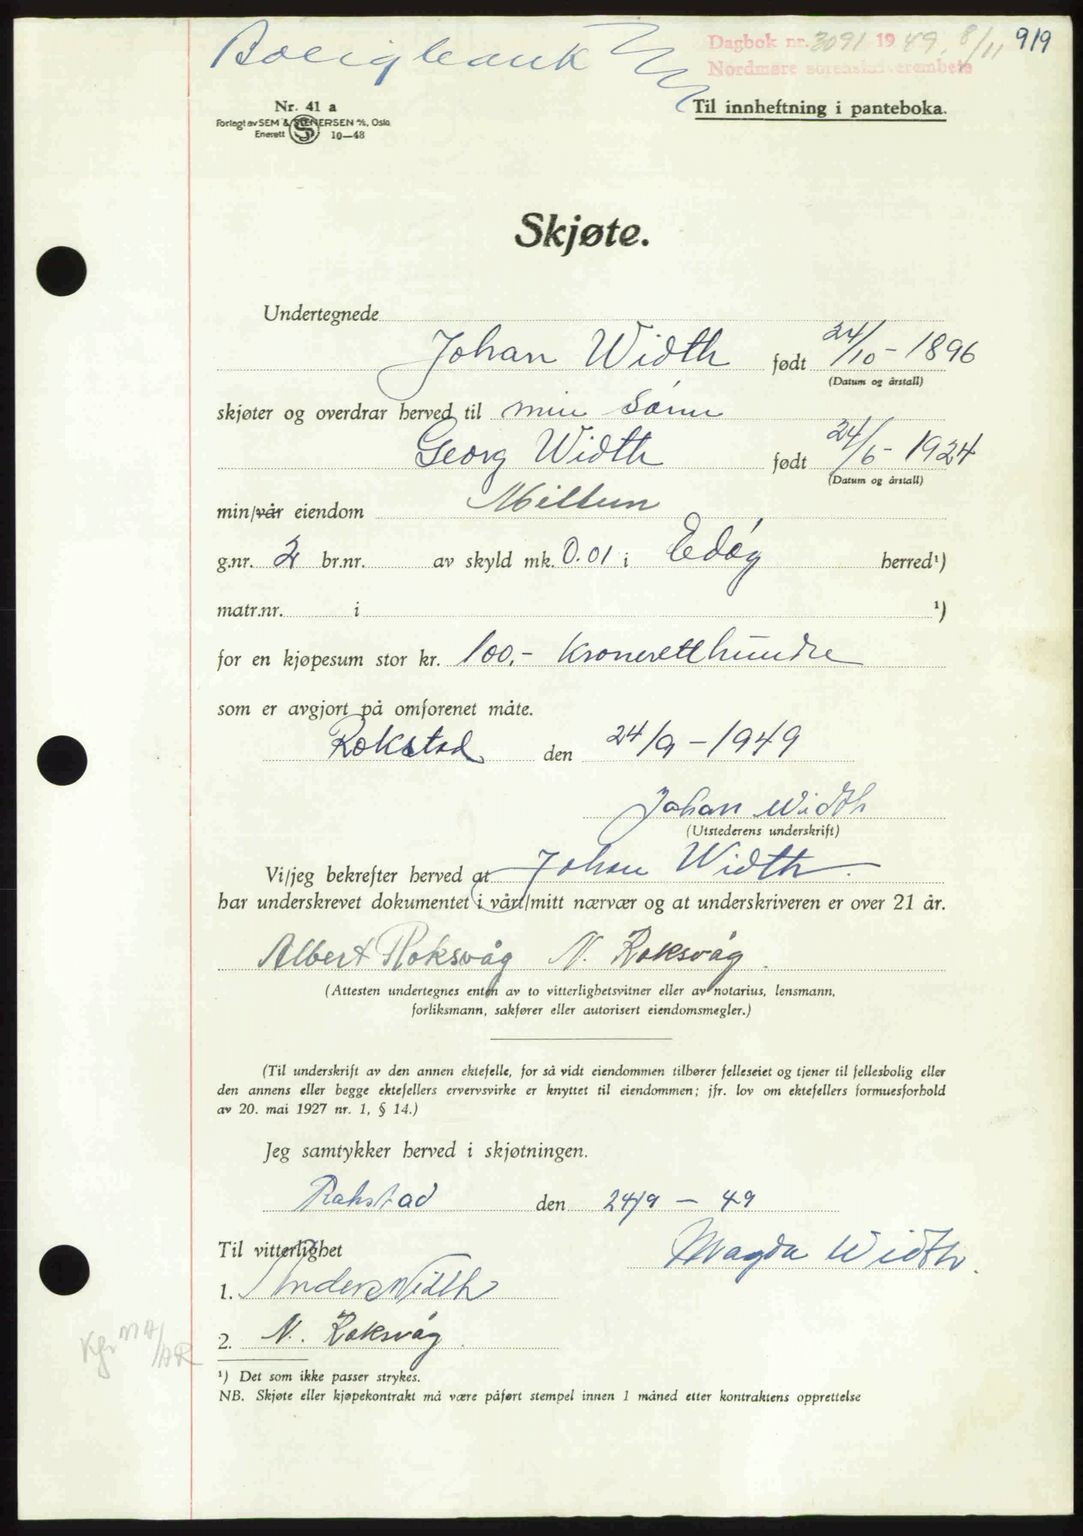 Boligbank
Dagbok nr. 3091 1949, 8/11 919
Nordmøre sorenskriverembete
Nr. 41 a
Forlagt av SEM & STENERSEN A/S, Oslo
Enerett S 10-48
Til innheftning i panteboka.
Skjøte.
Undertegnede
Johan Width født 24/10 - 1896
(Datum og årstall)
skjøter og overdrar herved til min sønn
Georg Width født 24/6 - 1924
(Datum og årstall)
min/vår eiendom Miltun
g.nr. 2 br.nr. av skyld mk. 0.01 i Edøy herred¹)
matr.nr. i ¹)
for en kjøpesum stor kr. 100,- Kroneretthundre
som er avgjort på omforenet måte.
Rokstad den 24/9 - 1949
Johan Width
(Utstederens underskrift)
Vi/jeg bekrefter herved at Johan Width.
har underskrevet dokumentet i vårt/mitt nærvær og at underskriveren er over 21 år.
Albert Roksvåg N. Roksvåg.
(Attesten undertegnes enten av to vitterlighetsvitner eller av notarius, lensmann,
forliksmann, sakfører eller autorisert eiendomsmegler.)
(Til underskrift av den annen ektefelle, for så vidt eiendommen tilhører felleseiet og tjener til fellesbolig eller
den annens eller begge ektefellers ervervsvirke er knyttet til eiendommen; jfr. lov om ektefellers formuesforhold
av 20. mai 1927 nr. 1, § 14.)
Jeg samtykker herved i skjøtningen.
Rokstad den 24/9 - 49
Til vitterlighet
Magda Width.
1. Anders Width
2. N. Roksvåg.
¹) Det som ikke passer strykes.
NB. Skjøte eller kjøpekontrakt må være påført stempel innen 1 måned etter kontraktens opprettelse